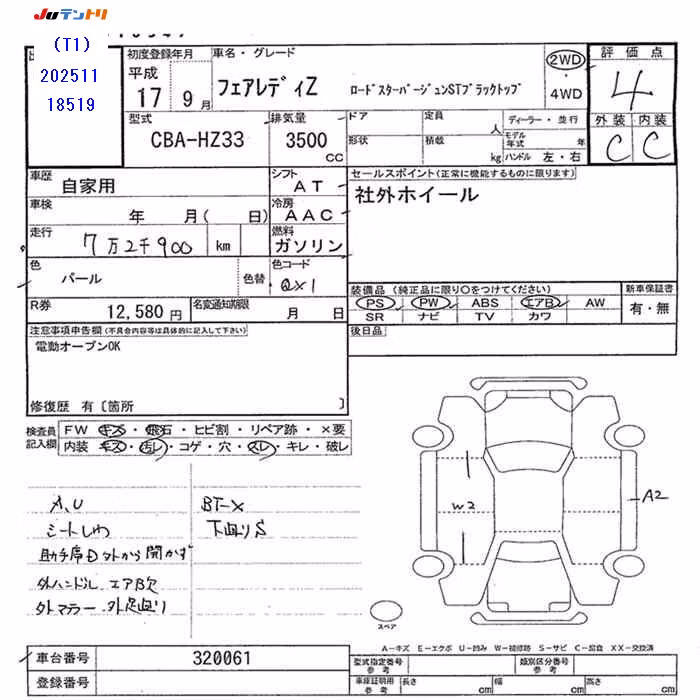 Juテントリ
(T1)
202511
18519
初度登録年月
平成
17 9月
車名・グレード
フェアレディZ ロードスターバージョンSTブラックトップ
2WD
・
4WD
評価点
4
外装 内装
C C
型式
CBA-HZ33
排気量
3500
cc
ドア
定員
人
形状
積載
kg
ディーラー・並行
モデル年式 年
ハンドル 左・右
車歴
自家用
シフト
AT
車検
年 月( 日)
冷房
AAC
走行
7万2千900 km
燃料
ガソリン
色
パール
色替
色コード
QX1
R券
12,580円
名変通知期限
月 日
セールスポイント(正常に機能するものに限ります)
社外ホイール
装備品(純正品に限り○をつけてください)
PS PW ABS エアB AW
SR ナビ TV カワ
新車保証書
有・無
後日品
注意事項申告欄(不具合内容等は具体的に記入して下さい)
電動オープンOK
修復歴 有〔箇所 〕
検査員記入欄
FW キズ・飛石・ヒビ割・リペア跡・×要
内装 キズ・汚レ・コゲ・穴・スレ・キレ・破レ
A、U
シートしわ
助手席D外から開かず
外ハンドル、エアB欠
外マフラー、外足廻り
BT-X
下廻りS
W2
A2
スペア
A-キズ E-エクボ U-凹み W-補修跡 S-サビ C-腐食 XX-交換済
車台番号
320061
登録番号
型式指定番号
参考
類別区分番号
参考
車庫証明用
参考
長さ cm
幅 cm
高さ cm